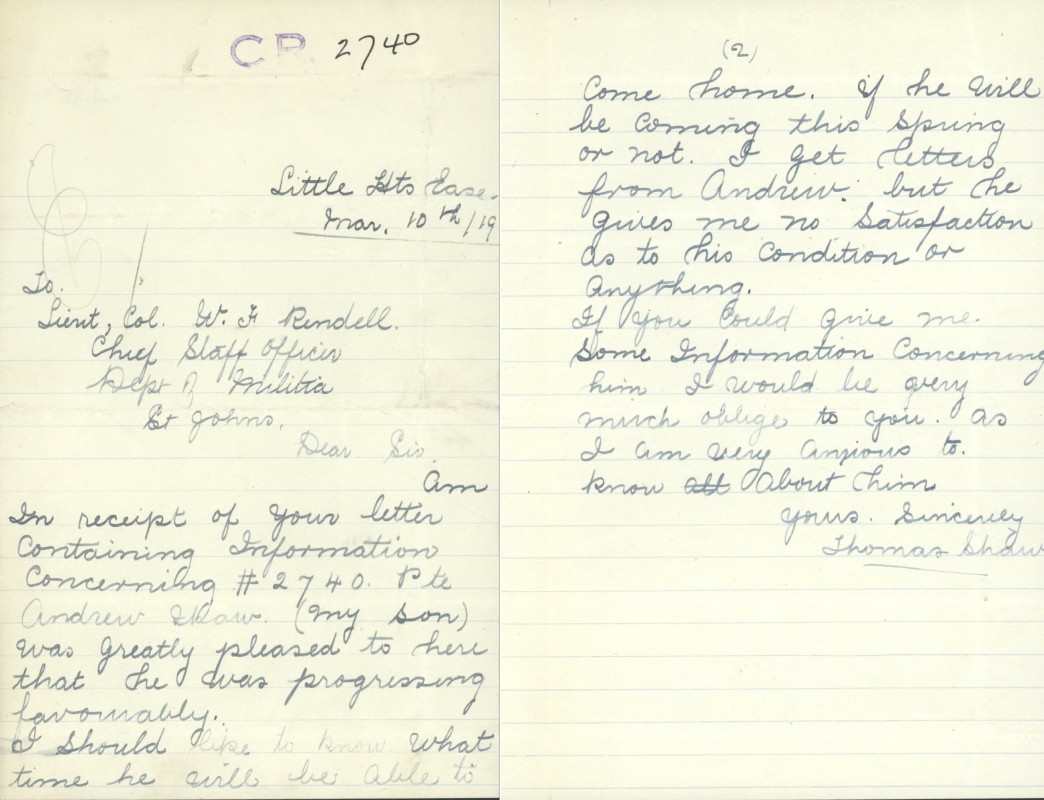 C.R. 2740
Little Hts Ease.
Mar. 10th/19
To.
Lieut, Col. W. F Rendell.
Chief Staff Officer
Dept of Militia
St Johns,
Dear Sir.
Am
In receipt of your letter
Containing Information
Concerning # 2740. Pte
Andrew Shaw. (my son)
was greatly pleased to here
that he was progressing
favourably.
I Should like to know What
time he will be Able to
(2)
Come home. if he will
be Coming this Spring
or not. I get letters
from Andrew. but he
gives me no Satisfaction
as to his Condition or
Anything.
If you Could give me.
Some Information Concerning
him I would be very
much oblige to you. as
I am very anxious to.
know all About him
yours. Sincerely
Thomas Shaw